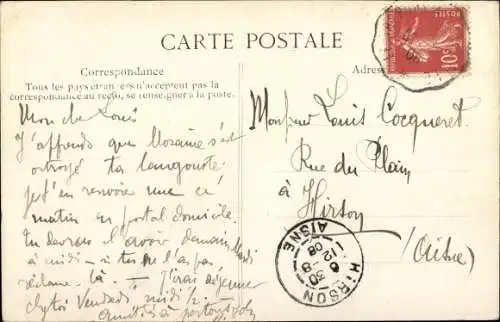 CARTE POSTALE
Correspondance
Tous les pays étrangers n'acceptent pas la
correspondance au recto, se renseigner à la poste.
Adres
Mon cher Louis
J'apprends que Mosaine s'est
octroyé ta langouste.
je t'en renvoie une ce
matin en postal domicile.
Tu devras l'avoir demain Mardi
à midi – si tu ne l'as pas
réclame-là. – J'irai déjeuner
chez toi Vendredi, midi ½ –
Amitiés à partager
Monsieur Louis Cocqueret
Rue du Plain
à Hirson
(Aisne)
HIRSON
AISNE
8 30
6 -12
08
POSTES
10c